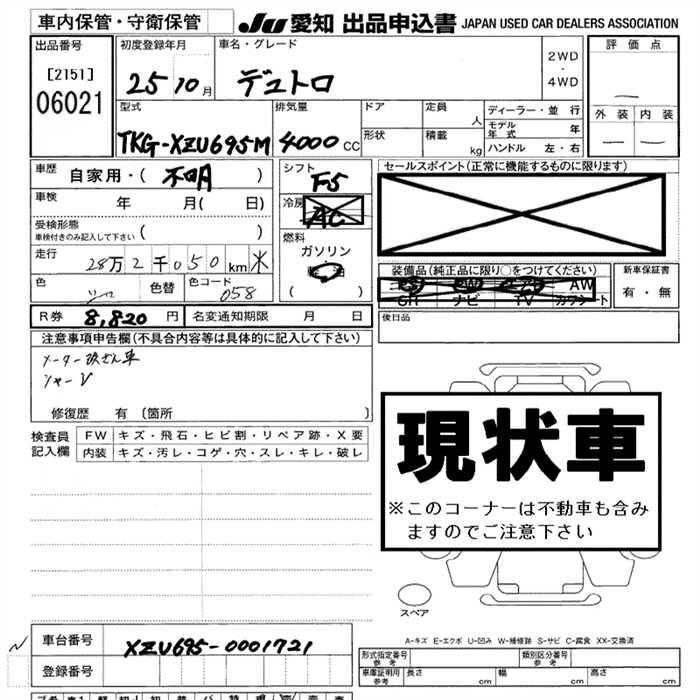 車内保管・守衛保管
JU 愛知 出品申込書 JAPAN USED CAR DEALERS ASSOCIATION
出品番号
[2151]
06021
初度登録年月
25 10 月
車名・グレード
デュトロ
2WD
・
4WD
評価点
外装 内装
型式
TKG-XZU695M
排気量
4000 CC
ドア
形状
定員 人
積載 kg
ディーラー・並行
モデル年式 年
ハンドル 左・右
車歴
自家用・( 不明 )
車検 年 月( 日)
受検形態
車検付きのみ記入して下さい ( )
走行
28万2千050km
色
色替
色コード
058
シフト
F5
冷房
AC
燃料
ガソリン
( )
セールスポイント(正常に機能するものに限ります)
装備品(純正品に限り○をつけてください)
AW
ナビ TV カワシート
新車保証書
有・無
R券 8,820 円 名変通知期限 月 日
後日品
注意事項申告欄(不具合内容等は具体的に記入して下さい)
メーター改ざん車
修復歴 有 〔箇所 〕
検査員
記入欄
FW キズ・飛石・ヒビ割・リペア跡・X要
内装 キズ・汚レ・コゲ・穴・スレ・キレ・破レ
現状車
※このコーナーは不動車も含み
ますのでご注意下さい
スペア
A-キズ E-エクボ U-凹み W-補修跡 S-サビ C-腐食 XX-交換済
車台番号 XZU695-0001721
登録番号
形式指定番号
参考
類別区分番号
参考
車庫証明用
参考
長さ cm 幅 cm 高さ cm